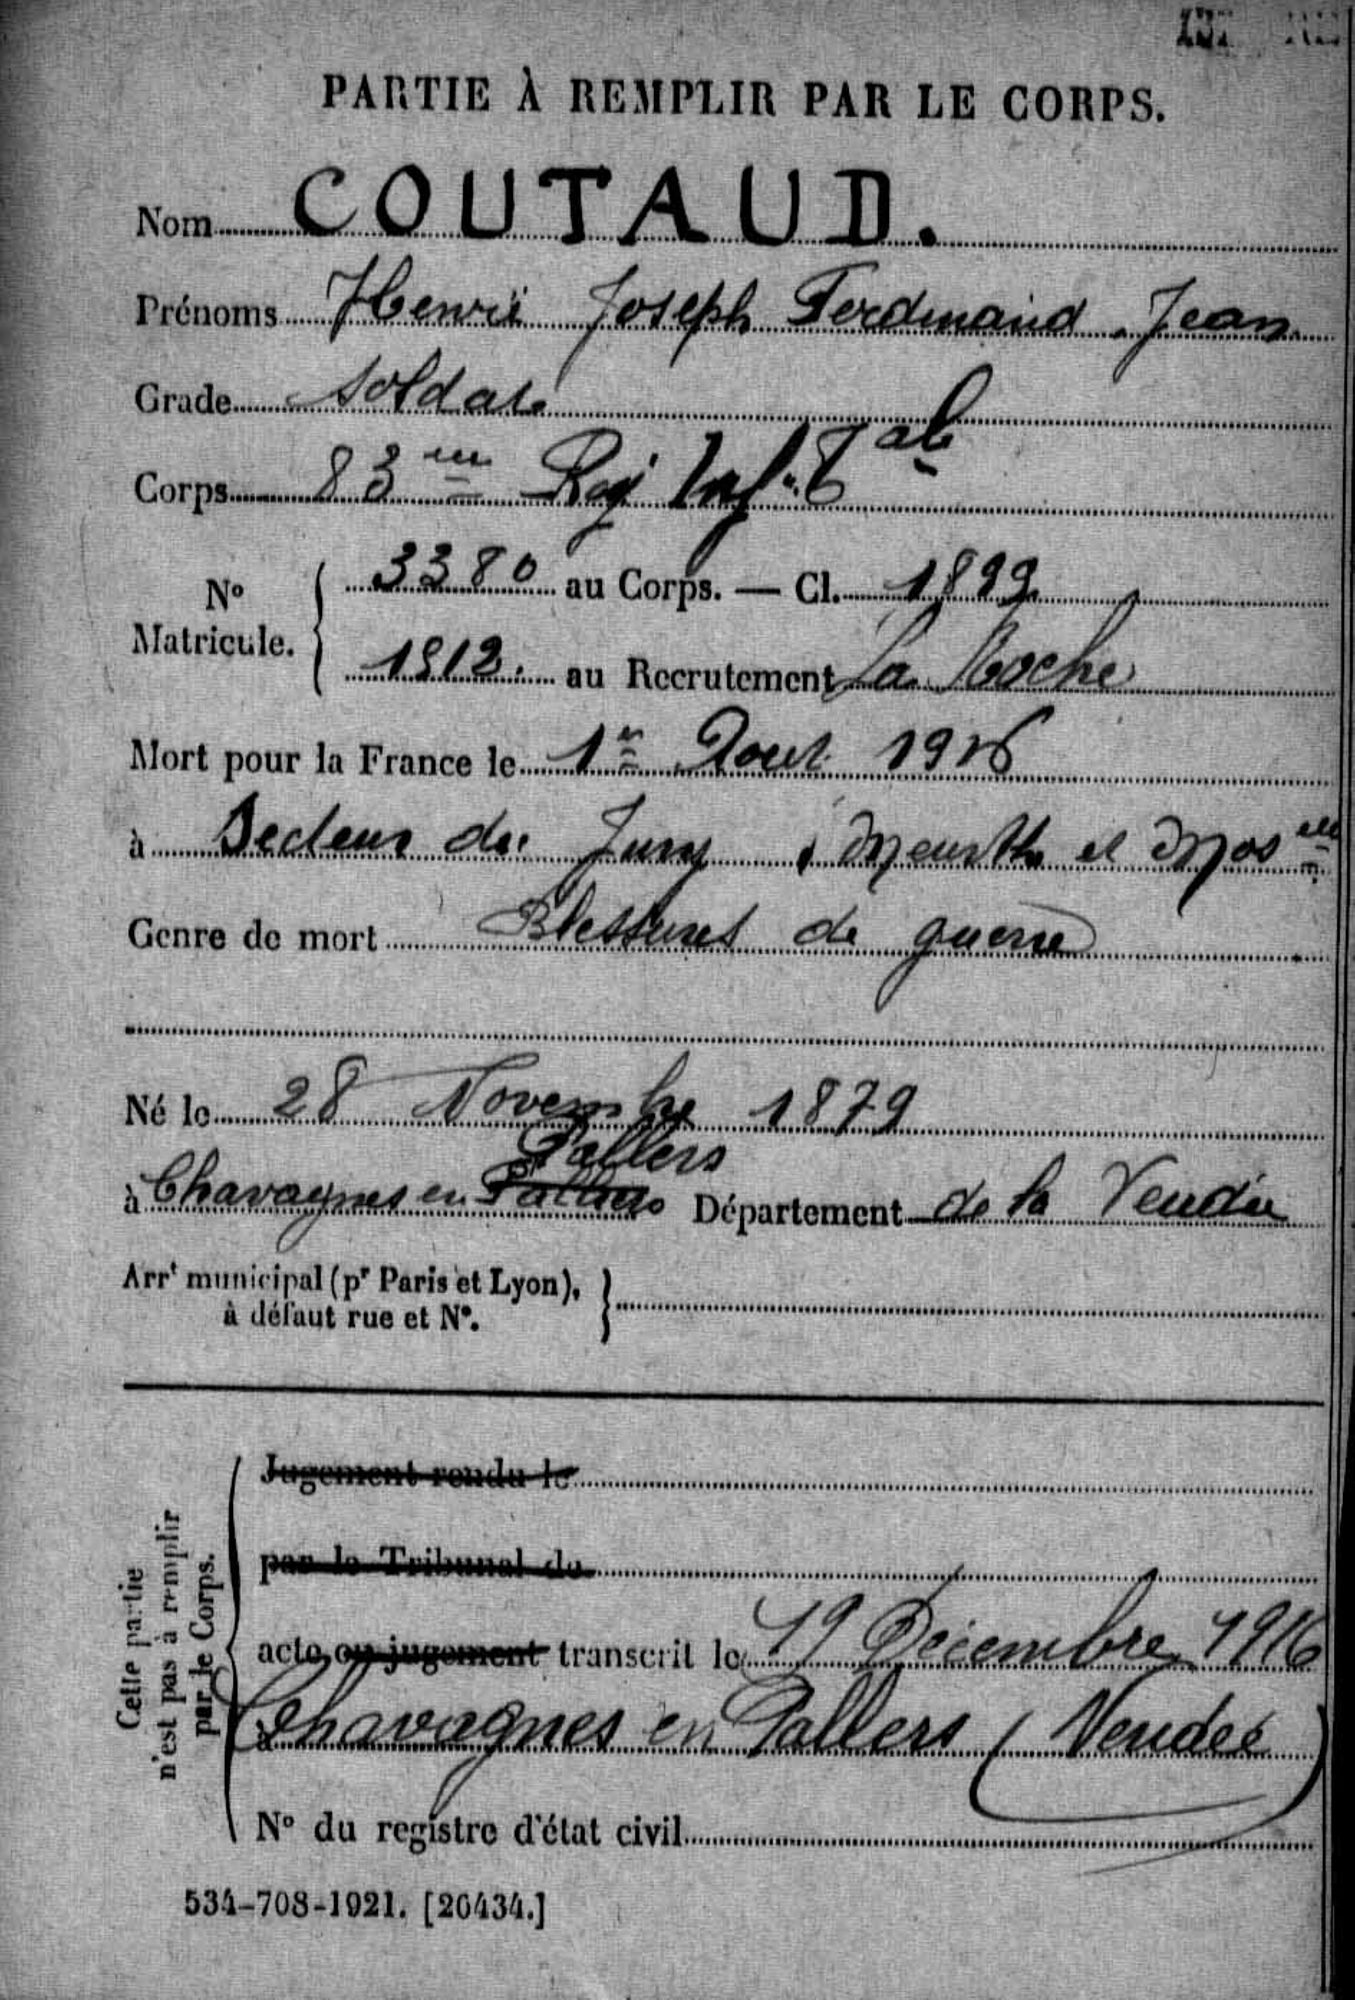 PARTIE À REMPLIR PAR LE CORPS.
Nom COUTAUD.
Prénoms Henri Joseph Ferdinand Jean
Grade soldat
Corps 83me Reg Inf. Tale
No Matricule. 3380 au Corps. — Cl. 1899
1912. au Recrutement La Roche
Mort pour la France le 1er Aout 1916
à Secteur de Jury, Meurthe et Moselle
Genre de mort Blessures de guerre
Né le 28 Novembre 1879
Pallers
à Chavagnes en Département de la Vendée
Arrt municipal (pr Paris et Lyon),
à défaut rue et No.
Cette partie
n'est pas à remplir
par le Corps.
Jugement rendu le
par le Tribunal de
acte ou jugement transcrit le 19 Décembre 1916
à Chavagnes en Pallers (Vendée)
No du registre d'état civil
534-708-1921. [26434.]